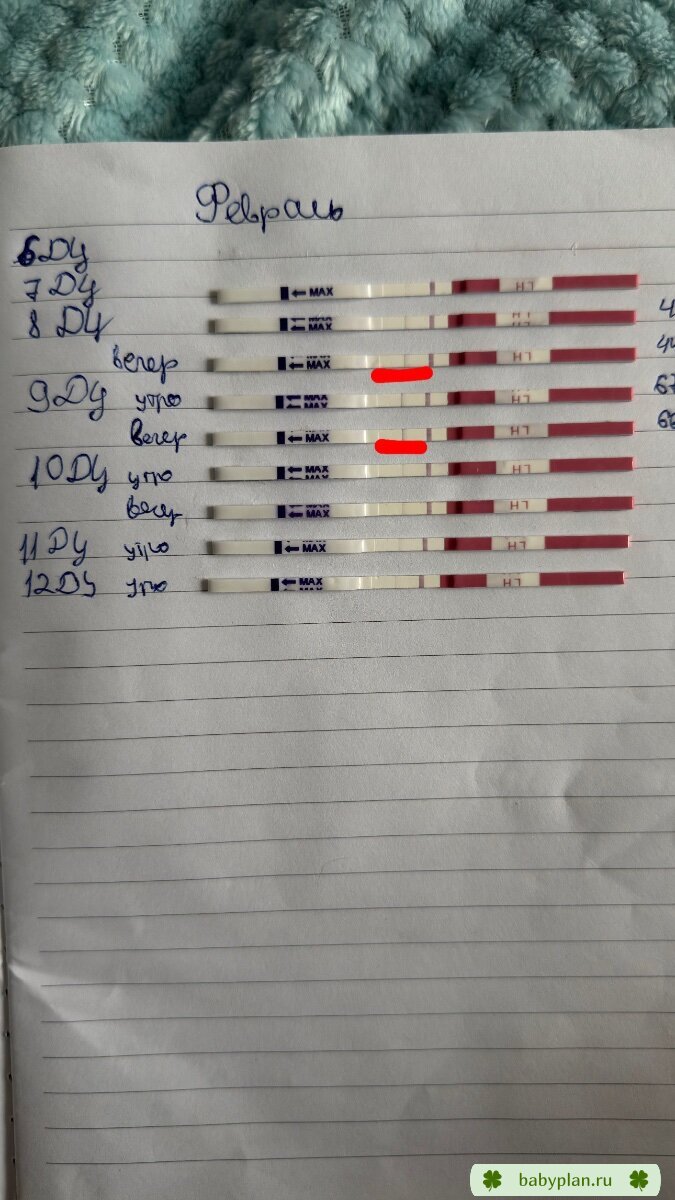 Февраль
6 ДЦ
7 ДЦ
← MAX LH
8 ДЦ
← MAX LH 4
вечер ← MAX LH 44
9 ДЦ утро ← MAX LH 67
вечер ← MAX LH 66
10 ДЦ утро ← MAX LH
вечер ← MAX LH
11 ДЦ утро ← MAX LH
12 ДЦ утро ← MAX LH
babyplan.ru